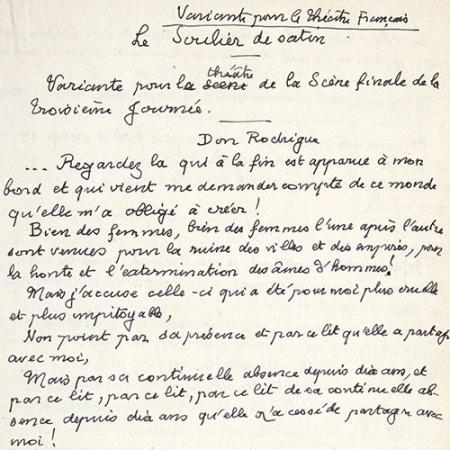 Variante pour le Théâtre Français
Le Soulier de satin
Variante pour la scène théâtre de la Scène finale de la
troisième Journée.
Don Rodrigue
... Regardez la qui à la fin est apparue à mon
bord et qui vient me demander compte de ce monde
qu'elle m'a obligé à créer !
Bien des femmes, bien des femmes l'une après l'autre
sont venues pour la ruine des villes et des empires, pour
la honte et l'extermination des âmes d'hommes !
Mais j'accuse celle-ci qui a été pour moi plus cruelle
et plus impitoyable,
Non point par sa présence et par ce lit qu'elle a partagé
avec moi,
Mais par sa continuelle absence depuis dix ans, et
par ce lit, par ce lit, par ce lit de sa continuelle ab-
sence depuis dix ans qu'elle n'a cessé de partager avec
moi !